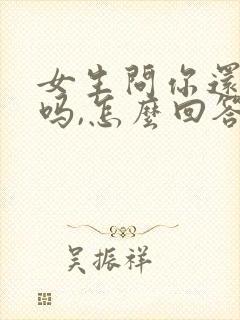 女生問你還
吗,怎麼回答
吴振祥